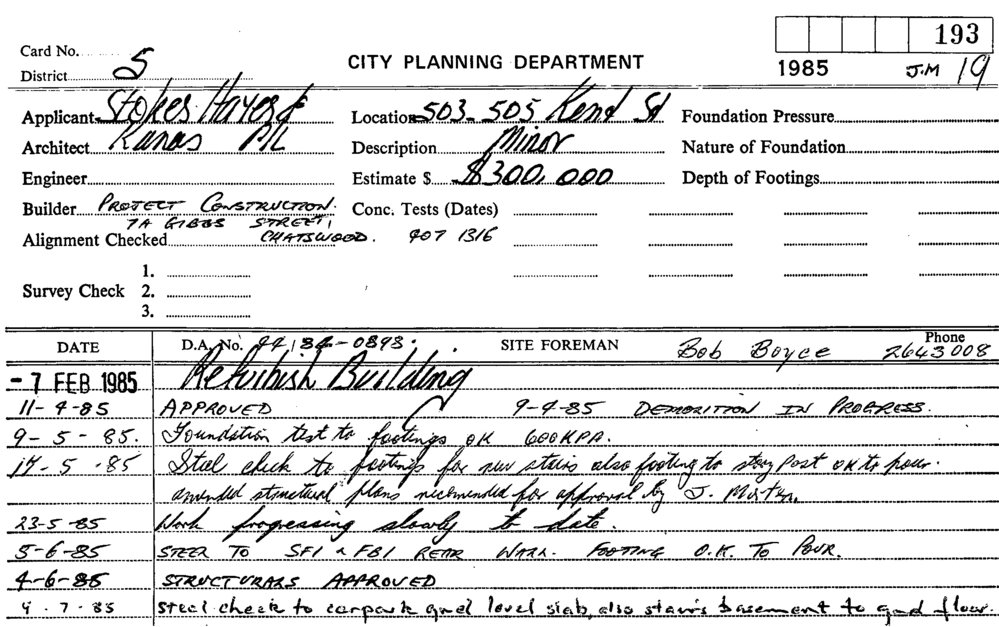 193
Card No.
District S
CITY PLANNING DEPARTMENT
1985 J.M 19
Applicant Stokes Hayes &
Location 503-505 Kent St
Foundation Pressure
Architect Kanas P/L
Description Minor
Nature of Foundation
Engineer
Estimate $ $300,000
Depth of Footings
Builder PROJECT CONSTRUCTION.
Conc. Tests (Dates)
7A GIBBS STREET,
Alignment Checked CHATSWOOD. 407 1316
1.
Survey Check 2.
3.
DATE D.A. No. 44/84-0893. SITE FOREMAN Bob Boyce Phone 2643008
- 7 FEB 1985 Refurbish Building
11-4-85 APPROVED 9-4-85 DEMOLITION IN PROGRESS.
9-5-85. Foundation test to footings OK 600KPA.
17-5-85 Steel check to footings for new stairs also footing to story post OK to pour.
amended structural plans recommended for approval by J.
23-5-85 Work progressing slowly to date.
5-6-85 STEEL TO SF1 & FB1 REAR WALL. FOOTING O.K. TO POUR.
4-6-85 STRUCTURALS APPROVED
4.7.85 Steel check to carpark gnd level slab, also stairs basement to gnd floor.